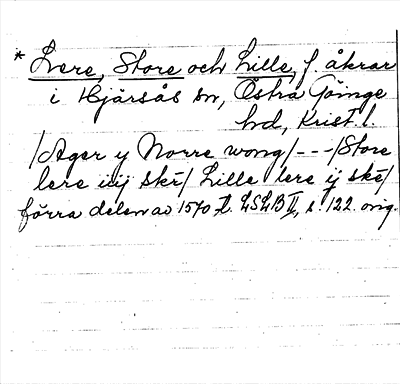 * Lere, Store och Lille, f. åkrar
i Hjärsås sn, Östra Göinge
hd, Krist. l.
/Ager y Norre wong/---/Store
lere iiij ske/ Lille lere ij ske/
förra delen av 1570 t. LSLB II, s. 122. orig.